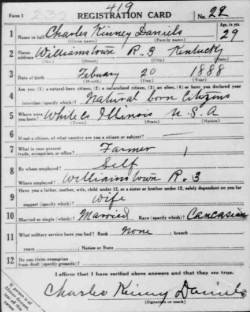 Form 1
419
REGISTRATION CARD
No. 22
Charles Kinney Daniels
Age, in yrs. 29
1 Name in full
(Given name) (Family name)
2 Home address
Williamstown R. 3 Kentucky
3 Date of birth
Febuary 20 1888
(Month) (Day) (Year)
4 Are you (1) a natural-born citizen, (2) a naturalized citizen, (3) an alien, (4) or have you declared your
intention (specify which)?
Natural born Citizens
5 Where were you born?
White Co Illinois U. S. A
6 If not a citizen, of what country are you a citizen or subject?
7 What is your present trade, occupation, or office?
Farmer 1
8 By whom employed?
Self
Where employed?
Williamstown R. 3
9 Have you a father, mother, wife, child under 12, or a sister or brother under 12, solely dependent on you for
support (specify which)?
Wife
10 Married or single (which)?
Married
Race (specify which)?
Caucasian
11 What military service have you had? Rank
None
; branch
years ; Nation or State
12 Do you claim exemption from draft (specify grounds)?
I affirm that I have verified above answers and that they are true.
Charles Kinny Daniels
(Signature or mark)